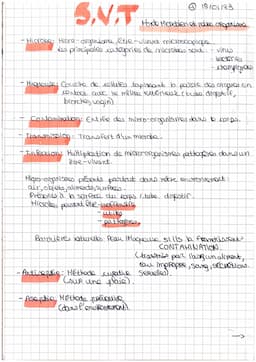 S.V.T
Monde Microbien et notre organisme
- Microbe: Micro-organisme, Etre-vivant microscopique
les principales catégories de microbes sont: - virus
- bactéries
- champignons
- Muqueuse: Couche de cellules tapissant la paroi des organes en
contact avec le milieu extérieur (tube digestif,
bronches, vagin)
- Contamination: Entrée des micro-organismes dans le corps.
- Transmission: Transfert d'un microbe.
- Infection: Multiplication de micro-organismes pathogènes dans un
être-vivant.
Micro-organismes présents partout dans notre environnement:
air, objets, aliments, surfaces.
Présents à la surface du corps / tube digestif.
Microbes peuvent être:
- utiles
- pathogènes.
Barrières naturelles: Peau / Muqueuse
CONTAMINATION
- Antiseptique: Méthode curative
(sur une plaie).
- Aseptie: Méthode préventive
(dans l'environnement).